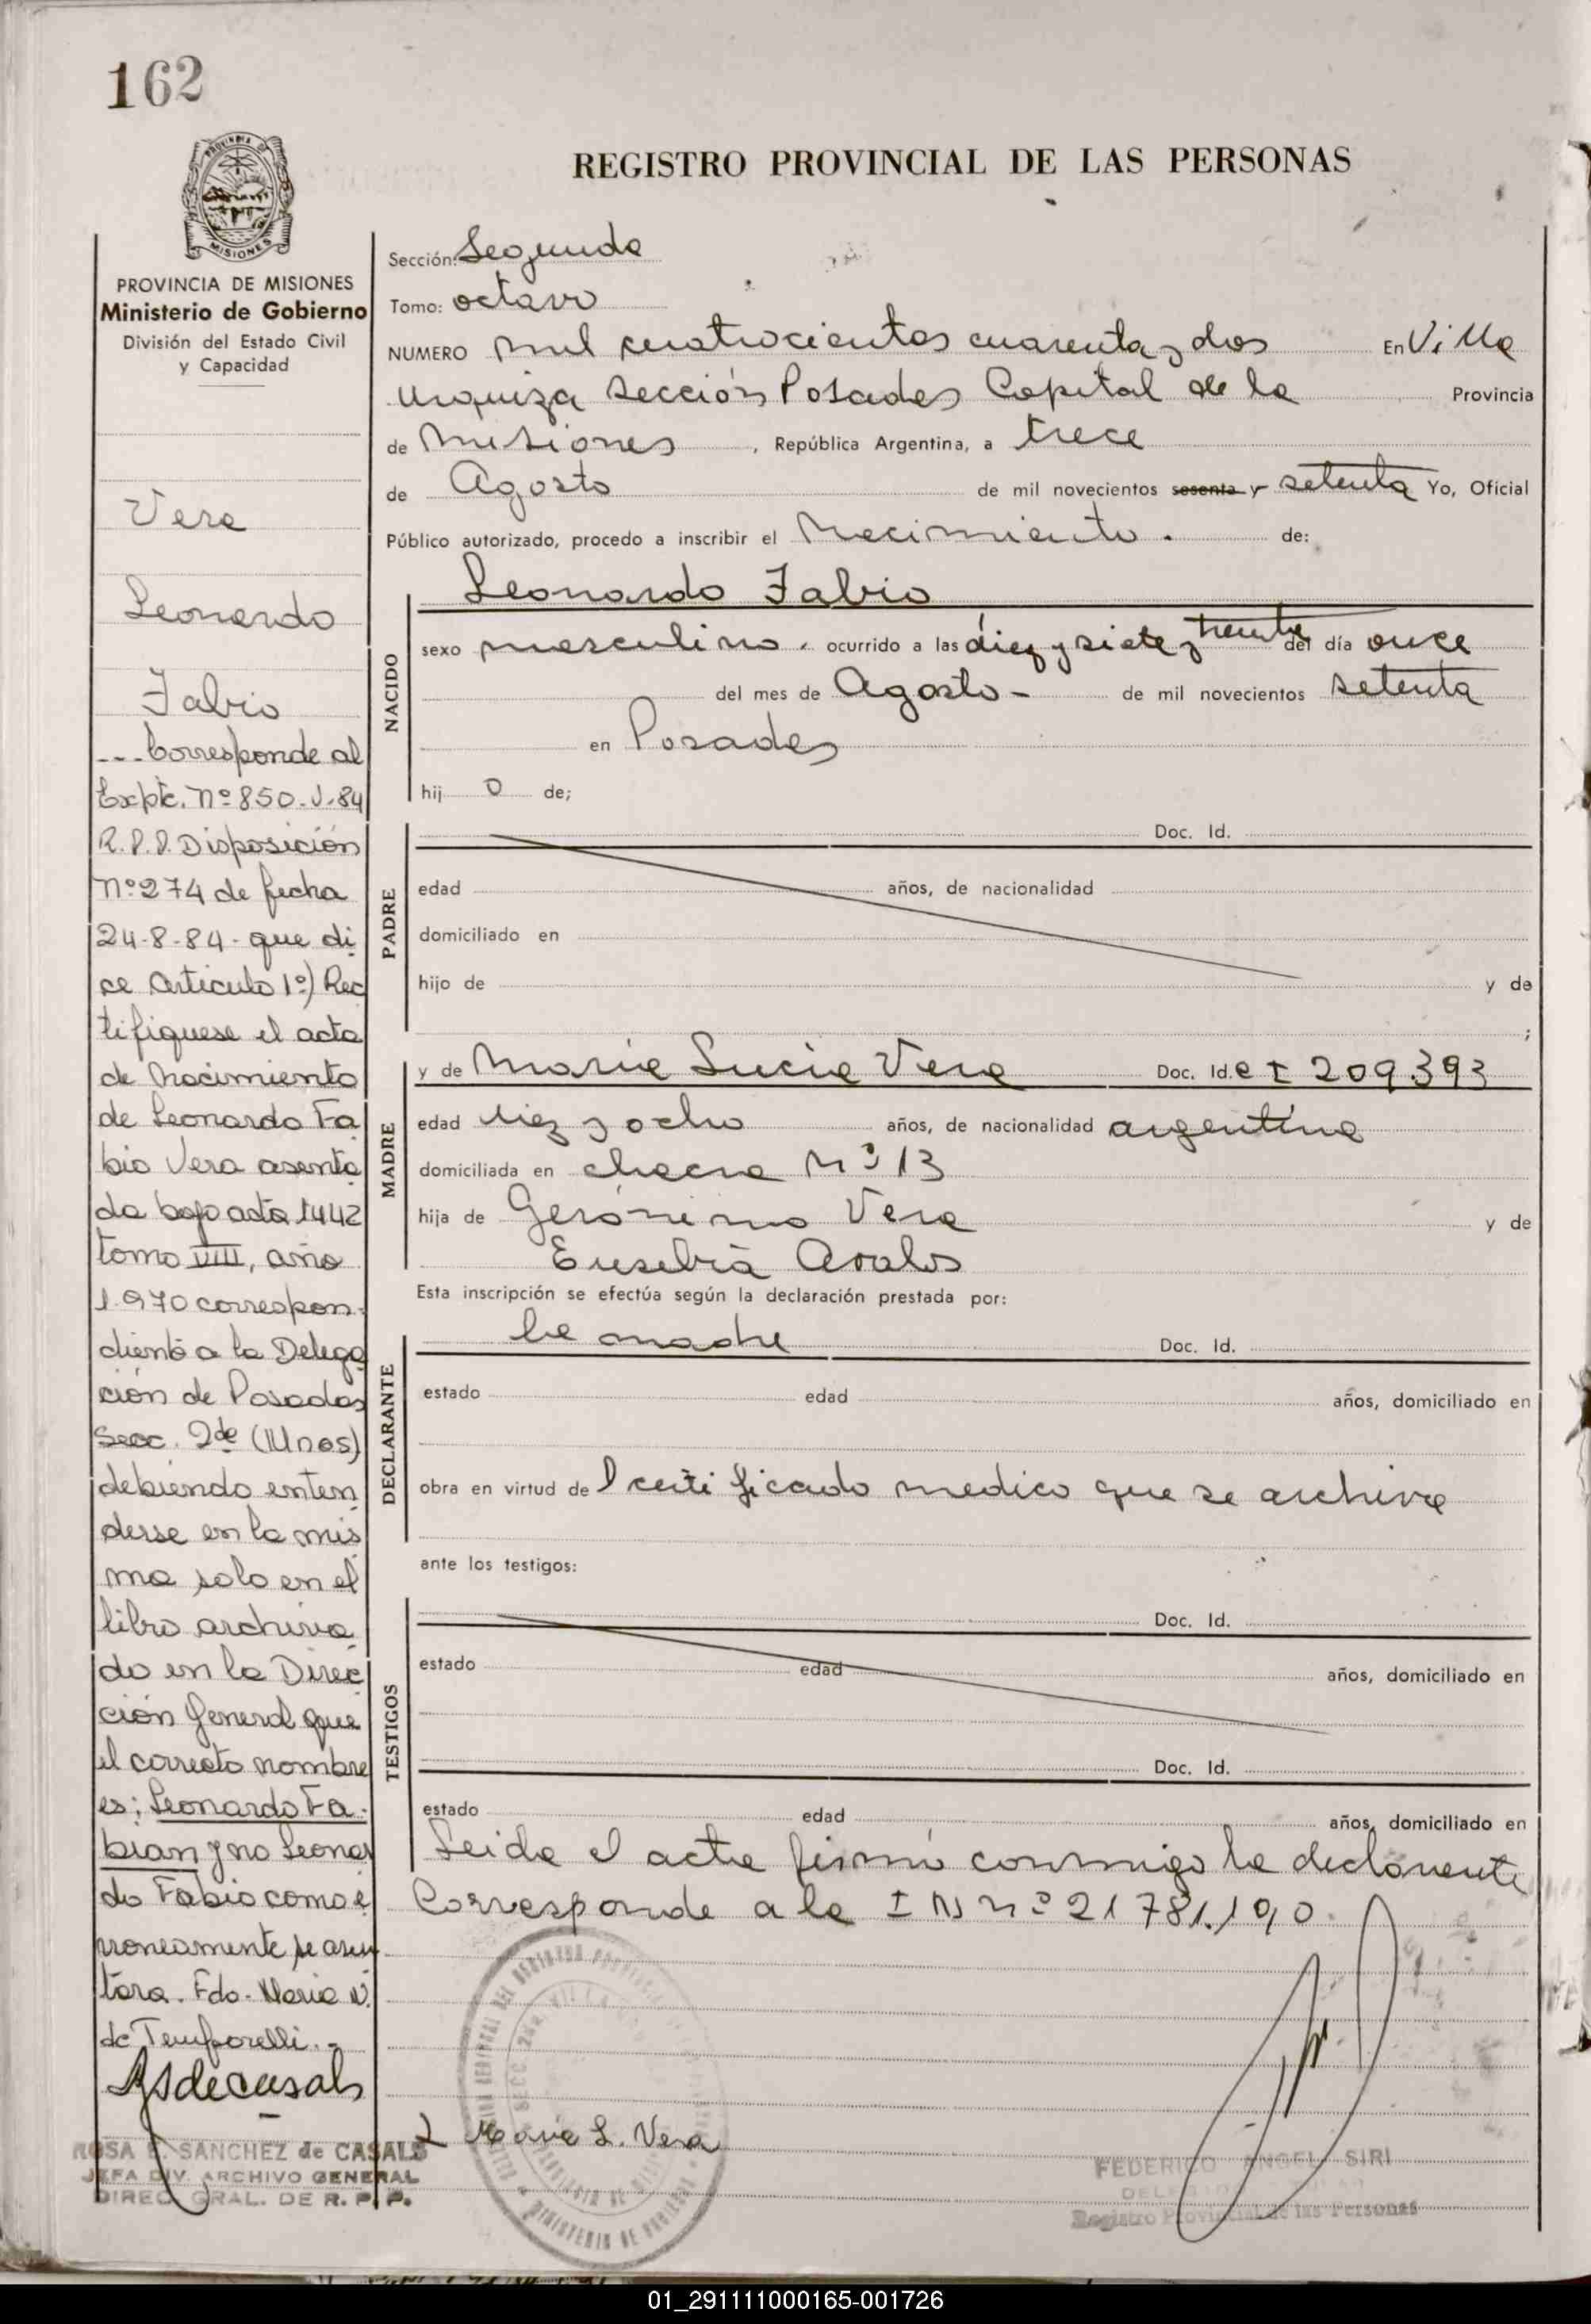 162
PROVINCIA DE MISIONES
Ministerio de Gobierno
División del Estado Civil
y Capacidad
Vera
Leonardo
Fabio
--- Corresponde al
Expte. Nº 850-V-84
R.P.P. Disposición
Nº 274 de fecha
24-8-84- que di
ce Articulo 1º) Rec
tifiquese el acta
de Nacimiento
de Leonardo Fa
bio Vera asenta
da bajo acta 1442
tomo VIII, año
1.970 correspon-
diente a la Delega
ción de Posadas
Secc. 2da (Mnes)
debiendo enten
derse en la mis
ma solo en el
libro archiva
do en la Direc
ción General que
el correcto nombre
es: Leonardo Fa-
bian y no Leonar
do Fabio como e
rroneamente se asen
tara. Fdo- Maria N.
de Temporelli.-
ROSA E. SANCHEZ de CASALS
JEFA DIV. ARCHIVO GENERAL
DIREC. GRAL. DE R. P. P.
REGISTRO PROVINCIAL DE LAS PERSONAS
Sección: Segunda
Tomo: octavo
NUMERO mil cuatrocientos cuarenta y dos En Villa
Urquiza Sección Posadas Capital de la Provincia
de Misiones, República Argentina, a trece
de Agosto de mil novecientos sesenta y setenta Yo, Oficial
Público autorizado, procedo a inscribir el Nacimiento. de:
Leonardo Fabio
NACIDO
sexo masculino. ocurrido a las diez y siete y treinta del día once
del mes de Agosto - de mil novecientos setenta
en Posadas
hij o de;
PADRE
Doc. Id.
edad años, de nacionalidad
domiciliado en
hijo de y de
;
MADRE
y de Maria Lucia Vera Doc. Id. C I 209.393
edad diez y ocho años, de nacionalidad argentina
domiciliada en chacra Nº 13
hija de Gerónimo Vera y de
Eusebia Avalos
Esta inscripción se efectúa según la declaración prestada por:
DECLARANTE
la madre Doc. Id.
estado edad años, domiciliado en
obra en virtud de l certificado medico que se archiva
ante los testigos:
TESTIGOS
Doc. Id.
estado edad años, domiciliado en
Doc. Id.
estado edad años, domiciliado en
Leida el acta firmó conmigo la declarante
Corresponde a la I N nº 21.781.190.
Maria L. Vera
FEDERICO ANGEL SIRI
Registro Provincial de las Personas
01_291111000165-001726